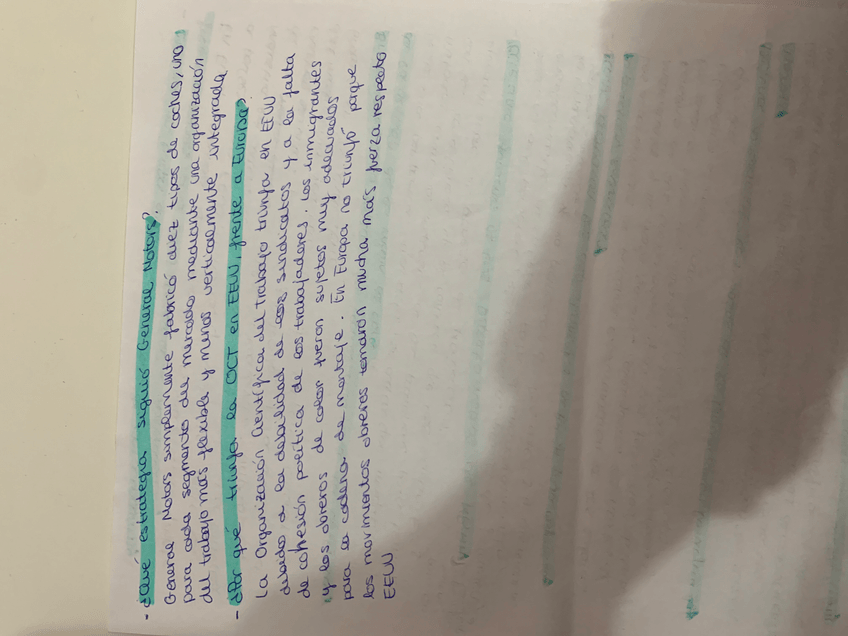 - ¿Qué estrategia siguió General Motors?
General Motors simplemente fabricó diez tipos de coches, uno
para cada segmento del mercado mediante una organización
del trabajo más flexible y menos verticalmente integrada
- ¿Por qué triunfa la OCT en EEUU, frente a Europa?
La Organización Científica del Trabajo triunfa en EEUU
debido a la debilidad de los sindicatos y a la falta
de cohesión política de los trabajadores. Los inmigrantes
y los obreros de color fueron sujetos muy adecuados
para la cadena de montaje. En Europa no triunfó porque
los movimientos obreros tomarón mucha más fuerza respecto
EEUU